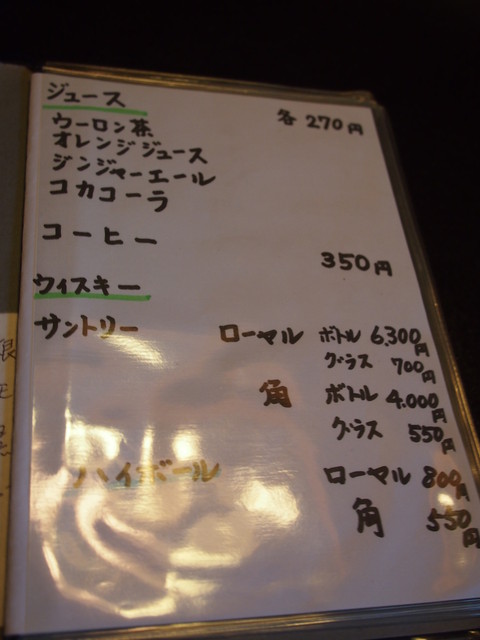 ジュース
各 270円
ウーロン茶
オレンジジュース
ジンジャーエール
コカコーラ
コーヒー
350円
ウィスキー
サントリー ローヤル ボトル 6,300円
グラス 700円
角 ボトル 4.000円
グラス 550円
ハイボール ローヤル 800円
角 550円